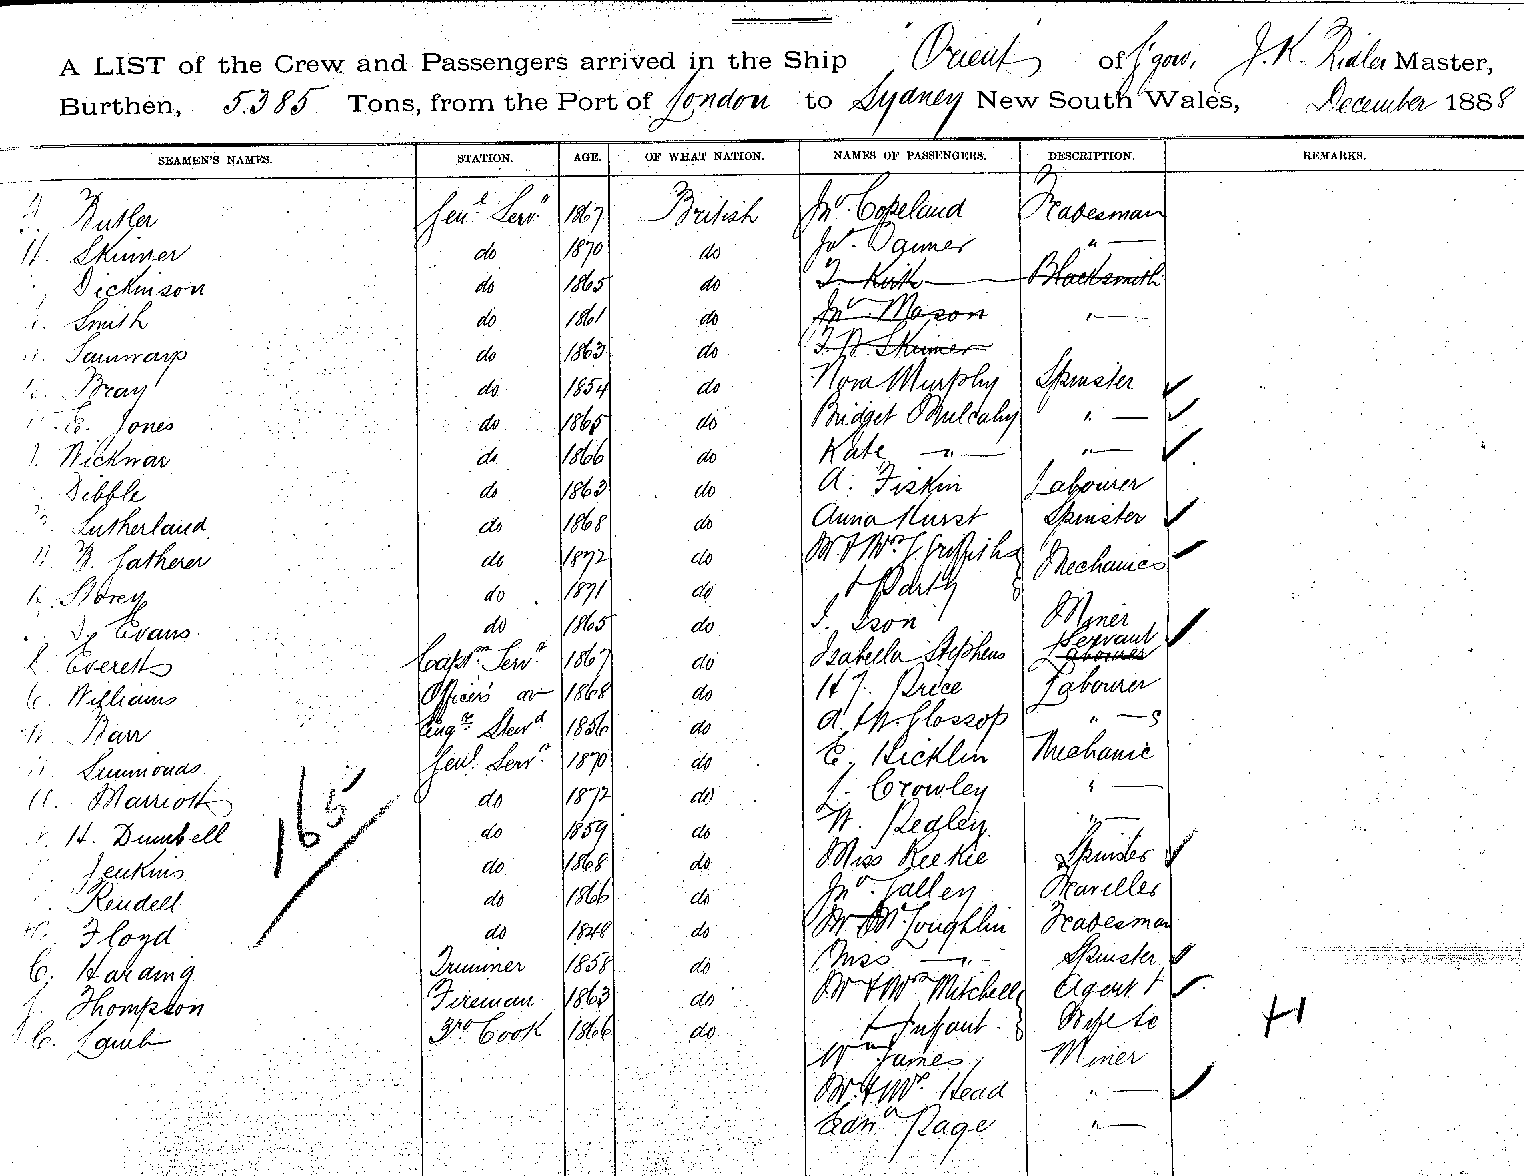 A LIST of the Crew and Passengers arrived in the Ship "Orient" of G'gow, J. K. Ridler Master,
Burthen, 5385 Tons, from the Port of London to Sydney New South Wales, December 1888
SEAMEN'S NAMES. STATION. AGE. OF WHAT NATION. NAMES OF PASSENGERS. DESCRIPTION. REMARKS.
Butler Genl. Servt. 1867 British Jno. Copeland Tradesman
H. Skinner do 1870 do Jno. Tanner " —
Dickinson do 1865 do T. Kirk Blacksmith
Smith do 1861 do Jno. Mason " —
do 1863 do Skinner
Bray do 1854 do Nora Murphy Spinster ✓
E. Jones do 1865 do Bridget Mulcahy " — ✓
Wickwar do 1866 do Kate — " — " — ✓
Dibble do 1863 do A. Fiskin Labourer
Sutherland do 1868 do Anna Hurst Spinster ✓
Gatherer do 1872 do Mr & Mrs Griffiths Mechanics ✓
Storey do 1871 do & Party
Evans do 1865 do J. Ison Miner
Everett Captn. Servt. 1867 do Isabella Stephens Servant Labourer ✓
Williams Officers do 1868 do H J. Price Labourer
Barr Engrs. Stewd 1856 do A. & W. Glossop " — s
Simmonds Genl. Servt. 1870 do E. Hicklin Mechanic
Marriott do 1872 do J. Crowley " —
H. Dumbell do 1859 do W. Pegley " —
165
Jenkins do 1868 do Miss Reekie Spinster ✓
Rendell do 1866 do Jno. Talley Traveller
Floyd do 1848 do Mr & Mrs Loughlin Tradesman
C. Harding Trimmer 1858 do Miss — " — Spinster ✓
J. Thompson Fireman 1863 do Mr & Mrs Mitchell Agent & ✓
C. Lamb 3rd Cook 1866 do & Infant Wife &c
H
Wm James Miner
Mr & Mrs Head " — ✓
Edn. Page " —